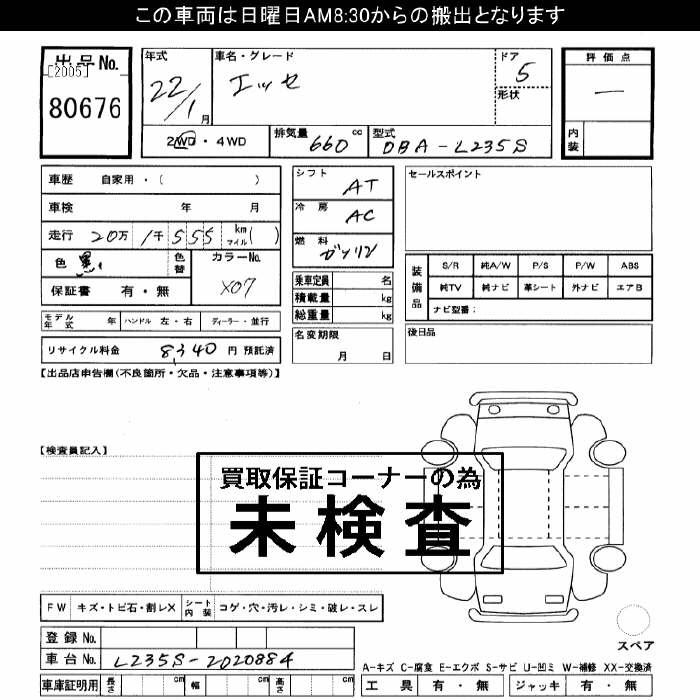 この車両は日曜日AM8:30からの搬出となります
出品No.
[2005]
80676
年式
22/1月
車名・グレード
エッセ
ドア
5
形状
評価点
―
内装
2WD・4WD
排気量 660 cc
型式 DBA-L235S
車歴 自家用・( )
車検 年 月
走行 20万 1千 555 km マイル ( )
色 黒
色替
カラーNo.
X07
保証書 有・無
シフト AT
冷房 AC
燃料 ガソリン
乗車定員 名
積載量 kg
総重量 kg
セールスポイント
装備品
S/R 純A/W P/S P/W ABS
純TV 純ナビ 革シート 外ナビ エアB
ナビ型番:
モデル年式 年 ハンドル 左・右 ディーラー・並行
リサイクル料金 8,340 円 預託済
名変期限
月 日
後日品
【出品店申告欄(不良箇所・欠品・注意事項等)】
【検査員記入】
買取保証コーナーの為
未検査
FW キズ・トビ石・割レX シート内装 コゲ・穴・汚レ・シミ・破レ・スレ
スペア
登録No.
車台No. L235S-2020884
A-キズ C-腐食 E-エクボ S-サビ U-凹ミ W-補修 XX-交換済
車庫証明用 長さ cm 幅 cm 高さ cm
工具 有・無 ジャッキ 有・無